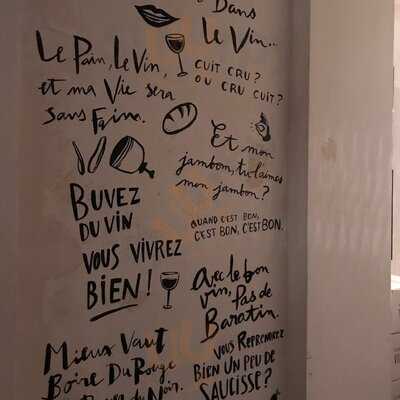 Dans
Le Vin...
Le Pain, Le Vin,
et ma Vie sera
Sans Faim.
CUIT CRU?
OU CRU CUIT?
Et mon
jambon, tu l'aimes
mon jambon?
BUVEZ
DU VIN
VOUS VIVREZ
BIEN!
QUAND C'EST BON,
C'EST BON, C'EST BON.
Avec le bon
vin, Pas de
Baratin.
Mieux Vaut
Boire Du Rouge
du Noir.
VOUS REPRENDREZ
BIEN UN PEU DE
SAUCISSE?